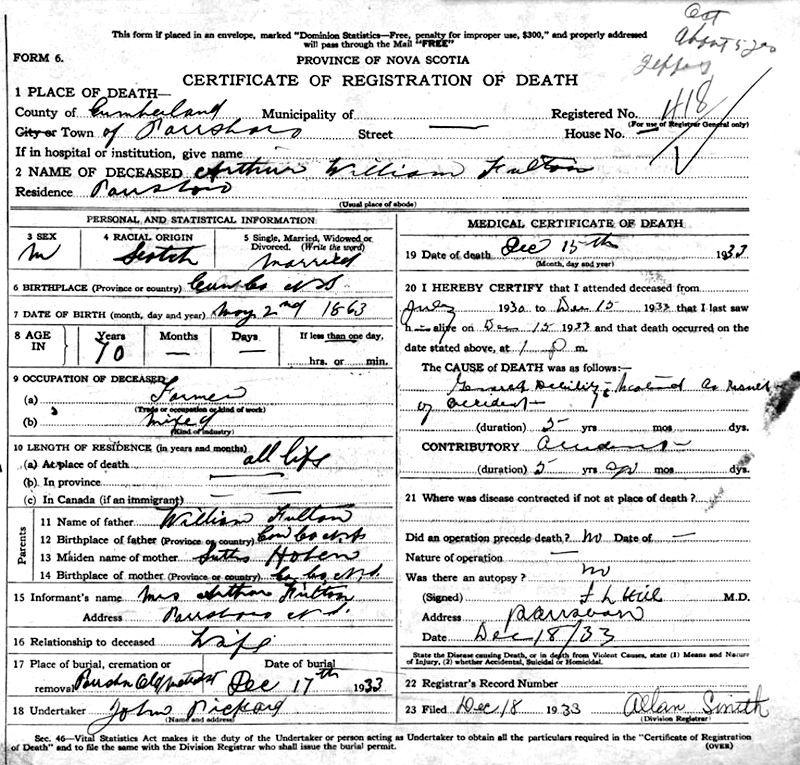 Oct
About 5 yrs
This form if placed in an envelope, marked "Dominion Statistics—Free, penalty for improper use, $300," and properly addressed
will pass through the Mail "FREE"
FORM 6.
PROVINCE OF NOVA SCOTIA
CERTIFICATE OF REGISTRATION OF DEATH
1 PLACE OF DEATH—
County of Cumberland Municipality of Registered No. 418
(For use of Registrar General only)
City or Town of Parrsboro Street — House No. —
If in hospital or institution, give name —
2 NAME OF DECEASED Arthur William Fulton
Residence Parrsboro
(Usual place of abode)
PERSONAL AND STATISTICAL INFORMATION
3 SEX 4 RACIAL ORIGIN 5 Single, Married, Widowed or
Divorced. (Write the word)
M Scotch Married
6 BIRTHPLACE (Province or country) Cum Co N S
7 DATE OF BIRTH (month, day and year) May 2nd 1863
8 AGE IN Years Months Days If less than one day,
70 — — hrs. or min.
9 OCCUPATION OF DECEASED
(a) Farmer
(Trade or occupation or kind of work)
(b) mixed
(Kind of industry)
10 LENGTH OF RESIDENCE (in years and months)
(a) At place of death all life
(b) In province —
(c) In Canada (if an immigrant) —
Parents
11 Name of father William Fulton
12 Birthplace of father (Province or country) Cum Co N S
13 Maiden name of mother
14 Birthplace of mother (Province or country) Co N.S.
15 Informant's name Mrs Arthur Fulton
Address Parrsboro N.S.
16 Relationship to deceased Wife
17 Place of burial, cremation or Date of burial
removal Dec 17th 1933
18 Undertaker John Rickard
(Name and address)
MEDICAL CERTIFICATE OF DEATH
19 Date of death Dec 15th 1933
(Month, day and year)
20 I HEREBY CERTIFY that I attended deceased from
July 1930 to Dec 15 1933 that I last saw
h alive on Dec 15 1933 and that death occurred on the
date stated above, at 1 p m.
The CAUSE of DEATH was as follows:—
General Debility as result
of accident—
(duration) 5 yrs mos dys.
CONTRIBUTORY Accident—
(duration) 5 yrs mos dys.
21 Where was disease contracted if not at place of death?
Did an operation precede death? No Date of —
Nature of operation —
Was there an autopsy? No
(Signed) M.D.
Address Parrsboro
Date Dec 18/33
State the Disease causing Death, or in death from Violent Causes, state (1) Means and Nature
of Injury, (2) whether Accidental, Suicidal or Homicidal.
22 Registrar's Record Number
23 Filed Dec 18 1933 Allan Smith
(Division Registrar)
Sec. 46—Vital Statistics Act makes it the duty of the Undertaker or person acting as Undertaker to obtain all the particulars required in the "Certificate of Registration
of Death" and to file the same with the Division Registrar who shall issue the burial permit.
(OVER)